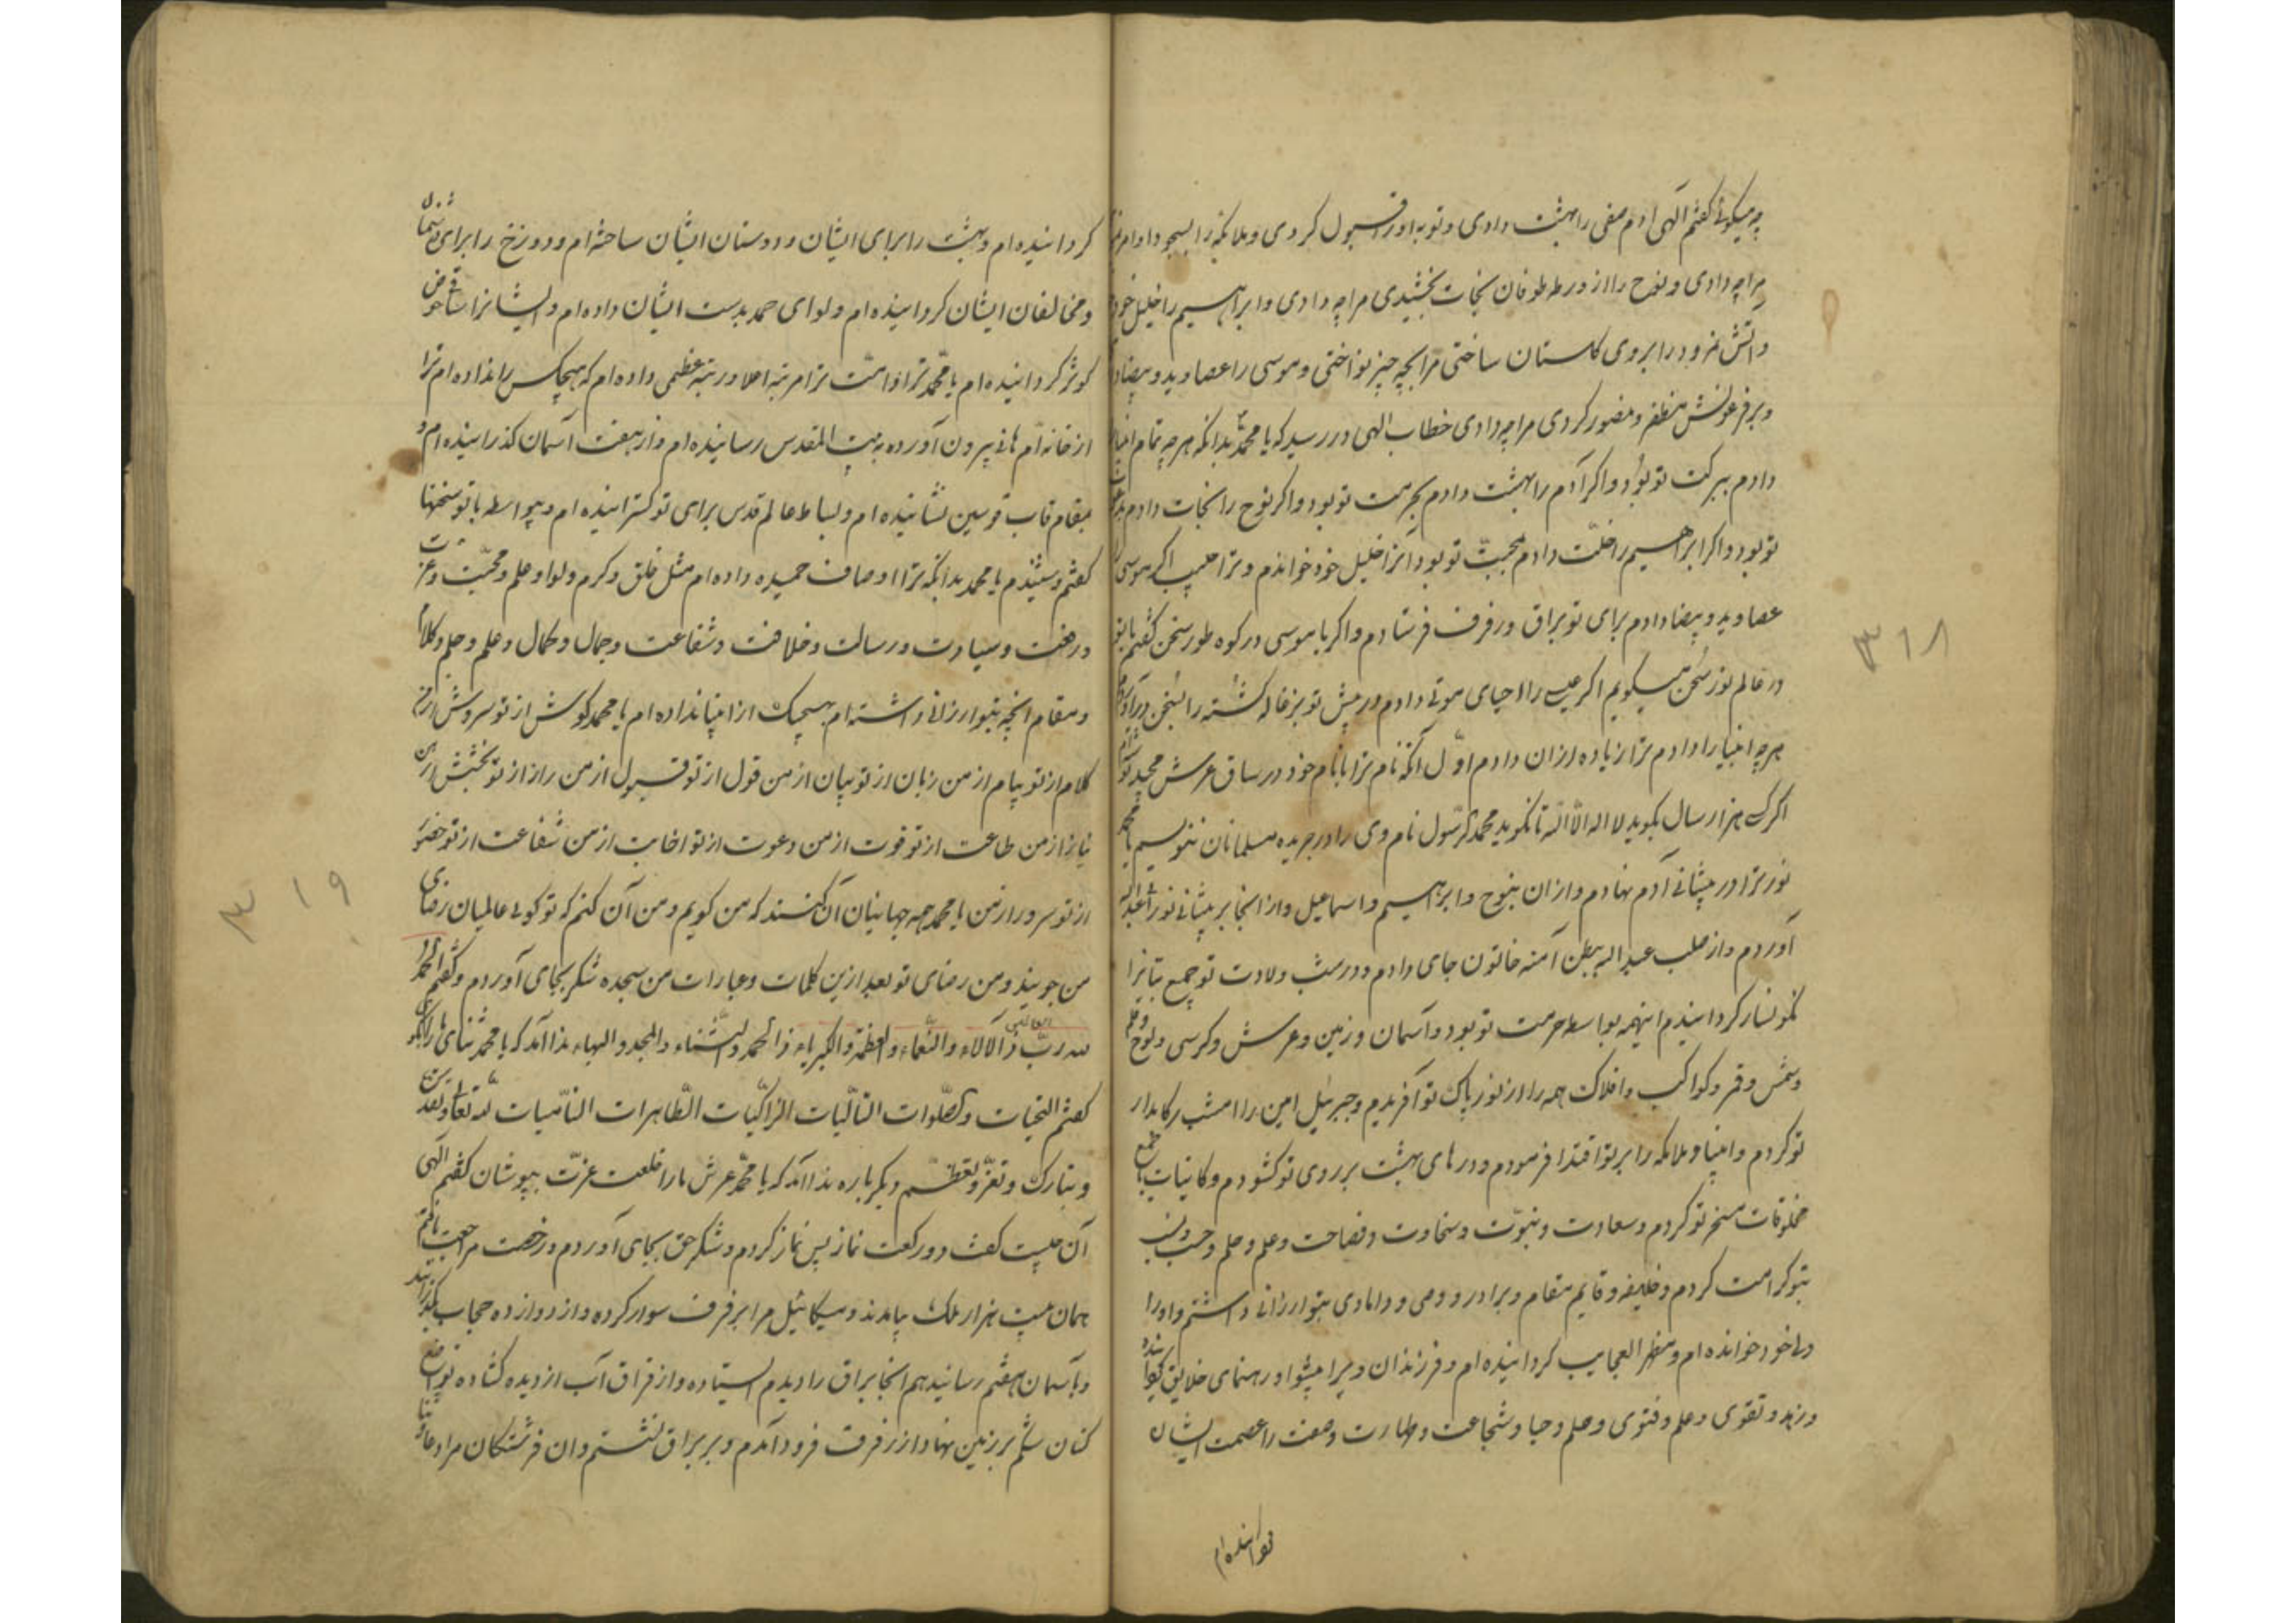 چه میکوئی کفتم الهی ادم صفی را بهشت دادی و توبه او را قبول کردی و ملائکه را بسجود او امر
مرا چه دادی و نوح را از ورطه طوفان نجات بخشیدی مرا چه دادی و ابراهیم را خلیل خود
و اتش نمرود را بروی کلستان ساختی مرا بچه چیز نواختی و موسی را عصا و ید و بیضا
و بر فرعونش مظفر و منصور کردی مرا چه دادی خطاب الهی در رسید که یا محمد بدانکه هر چه تمام انبیا
دادم ببرکت تو بود و اکر آدم را بهشت دادم بحرمت تو بود و اکر نوح را نجات دادم
تو بود و اکر ابراهیم را خلّت دادم بمحبت تو بود آنرا خلیل خود خواندم و ترا حبیب اکر موسی
عصا و ید و بیضا دادم برای تو براق و رفرف فرستادم و اکر با موسی در کوه طور سخن کفتم با تو
در عالم نور سخن میکویم اکر عیسی را احیای موتی دادم در پیش تو بزغاله کشته را بسخن درآوردم
هر چه انبیا را دادم ترا زیاده از ان دادم اوّل آنکه نام ترا با نام خود در ساق عرش مجید
اکر کسی هزار سال بکوید لا اله الّا الله تا نکوید محمد رسول نام وی را در جریده مسلمانان ننویسم یا محمد
نور ترا در پیشانی آدم نهادم و ازان بنوح و ابراهیم و اسماعیل و از انجا بر پیشانی نور عبدالله
آوردم و از صلب عبدالله ببطن آمنه خاتون جای دادم و در شب ولادت تو جمیع بتانرا
نکونسار کردانیدم اینهمه بواسطه حرمت تو بود و آسمان و زمین و عرش و کرسی و لوح و قلم
و شمس و قمر و کواکب و افلاک همه را از نور پاک تو آفریدم و جبرئیل امین را امشب رکابدار
تو کردم و انبیا و ملائکه را بر تو اقتدا فرمودم و درهای بهشت بر روی تو کشودم و کاینات جمیع
مخلوقات مسخر تو کردم و سعادت و نبوّت و سخاوت و فصاحت و علم و حلم و حسب و نسب
بتو کرامت کردم و خلیفه و قایم مقام و برادر و وصی و دامادی بتو ارزانی داشتم و او را
ولی خود خوانده ام و مظهر العجایب کردانیده ام و فرزندان ویرا پیشوا و رهنمای خلایق
و زهد و تقوی و علم و فتوی و حلم و حیا و شجاعت و طهارت و عفت را عصمت ایشان
۳۱۸
کردانیده ام و بهشت را برای ایشان و دوستان ایشان ساخته ام و دوزخ را برای دشمنان
و مخالفان ایشان کردانیده ام و لوای حمد بدست ایشان داده ام و ایشانرا ساقی حوض
کوثر کردانیده ام یا محمّد ترا و امّت ترا مرتبه اعلا و رتبه عظمی داده ام که هیچکس را نداده ام ترا
از خانه امّ هانی بیرون آورده به بیت المقدس رسانیده ام و از هفت آسمان کذرانیده ام و
بمقام قاب قوسین نشانیده ام و بساط عالم قدس برای تو کسترانیده ام و بیواسطه با تو سخنها
کفتم و شنیدم یا محمد بدانکه ترا اوصاف حمیده داده ام مثل خلق و کرم و لوا و علم و محبّت و عزت
و رفعت و سیادت و رسالت و خلافت و شفاعت و جمال و کمال و علم و حلم و کلام
و مقام انچه بتو ارزانی داشته ام بهیچیک از انبیا نداده ام یا محمد کوش از تو سروش از من
کلام از تو پیام از من زبان از تو بیان از من قول از تو قبول از من راز از تو بخشش از من
نیاز از من طاعت از تو قوت از من دعوت از تو اجابت از من شفاعت از تو
از تو سرور از من یا محمد همه جهانیان آن کنند که من کویم و من آن کنم که تو کوئی عالمیان رضای
من جویند و من رضای تو بعد ازین کلمات و عبارات من سجده شکر بجای آوردم و کفتم الحمد
لله ربّ العالمین ذو الآلاء و النّعماء و العظمة و الکبریاء ذو الحمد و الثناء و المجد و البهاء ندا آمد که یا محمد ثنای ما را بکو
کفتم التحیات و الصّلوات التالیات الزاکیات الطّاهرات النامیات لله تعالی و تقدس
و تبارک و تعزّز و تعظّم دیکر باره ندا آمد که یا محمد عرش ما را خلعت عزّت بپوشان کفتم الهی
آن چیست کفت دو رکعت نماز پس نماز کردم و شکر حق بجای آوردم و رخصت مراجعت یافتم
همان بیست هزار ملک بیامدند و میکائیل مرا بر فرف سوار کرده و از دوازده حجاب بگذرانید
و بآسمان هفتم رسانید هم انجا براق را دیدم ایستاده و از فراق آب از دیده کشاده تواضع
کنان شکم بر زمین نهاد از رفرف فرود آمدم و بر براق نشستم و ان فرشتکان مرا دعا و
۳۱۹